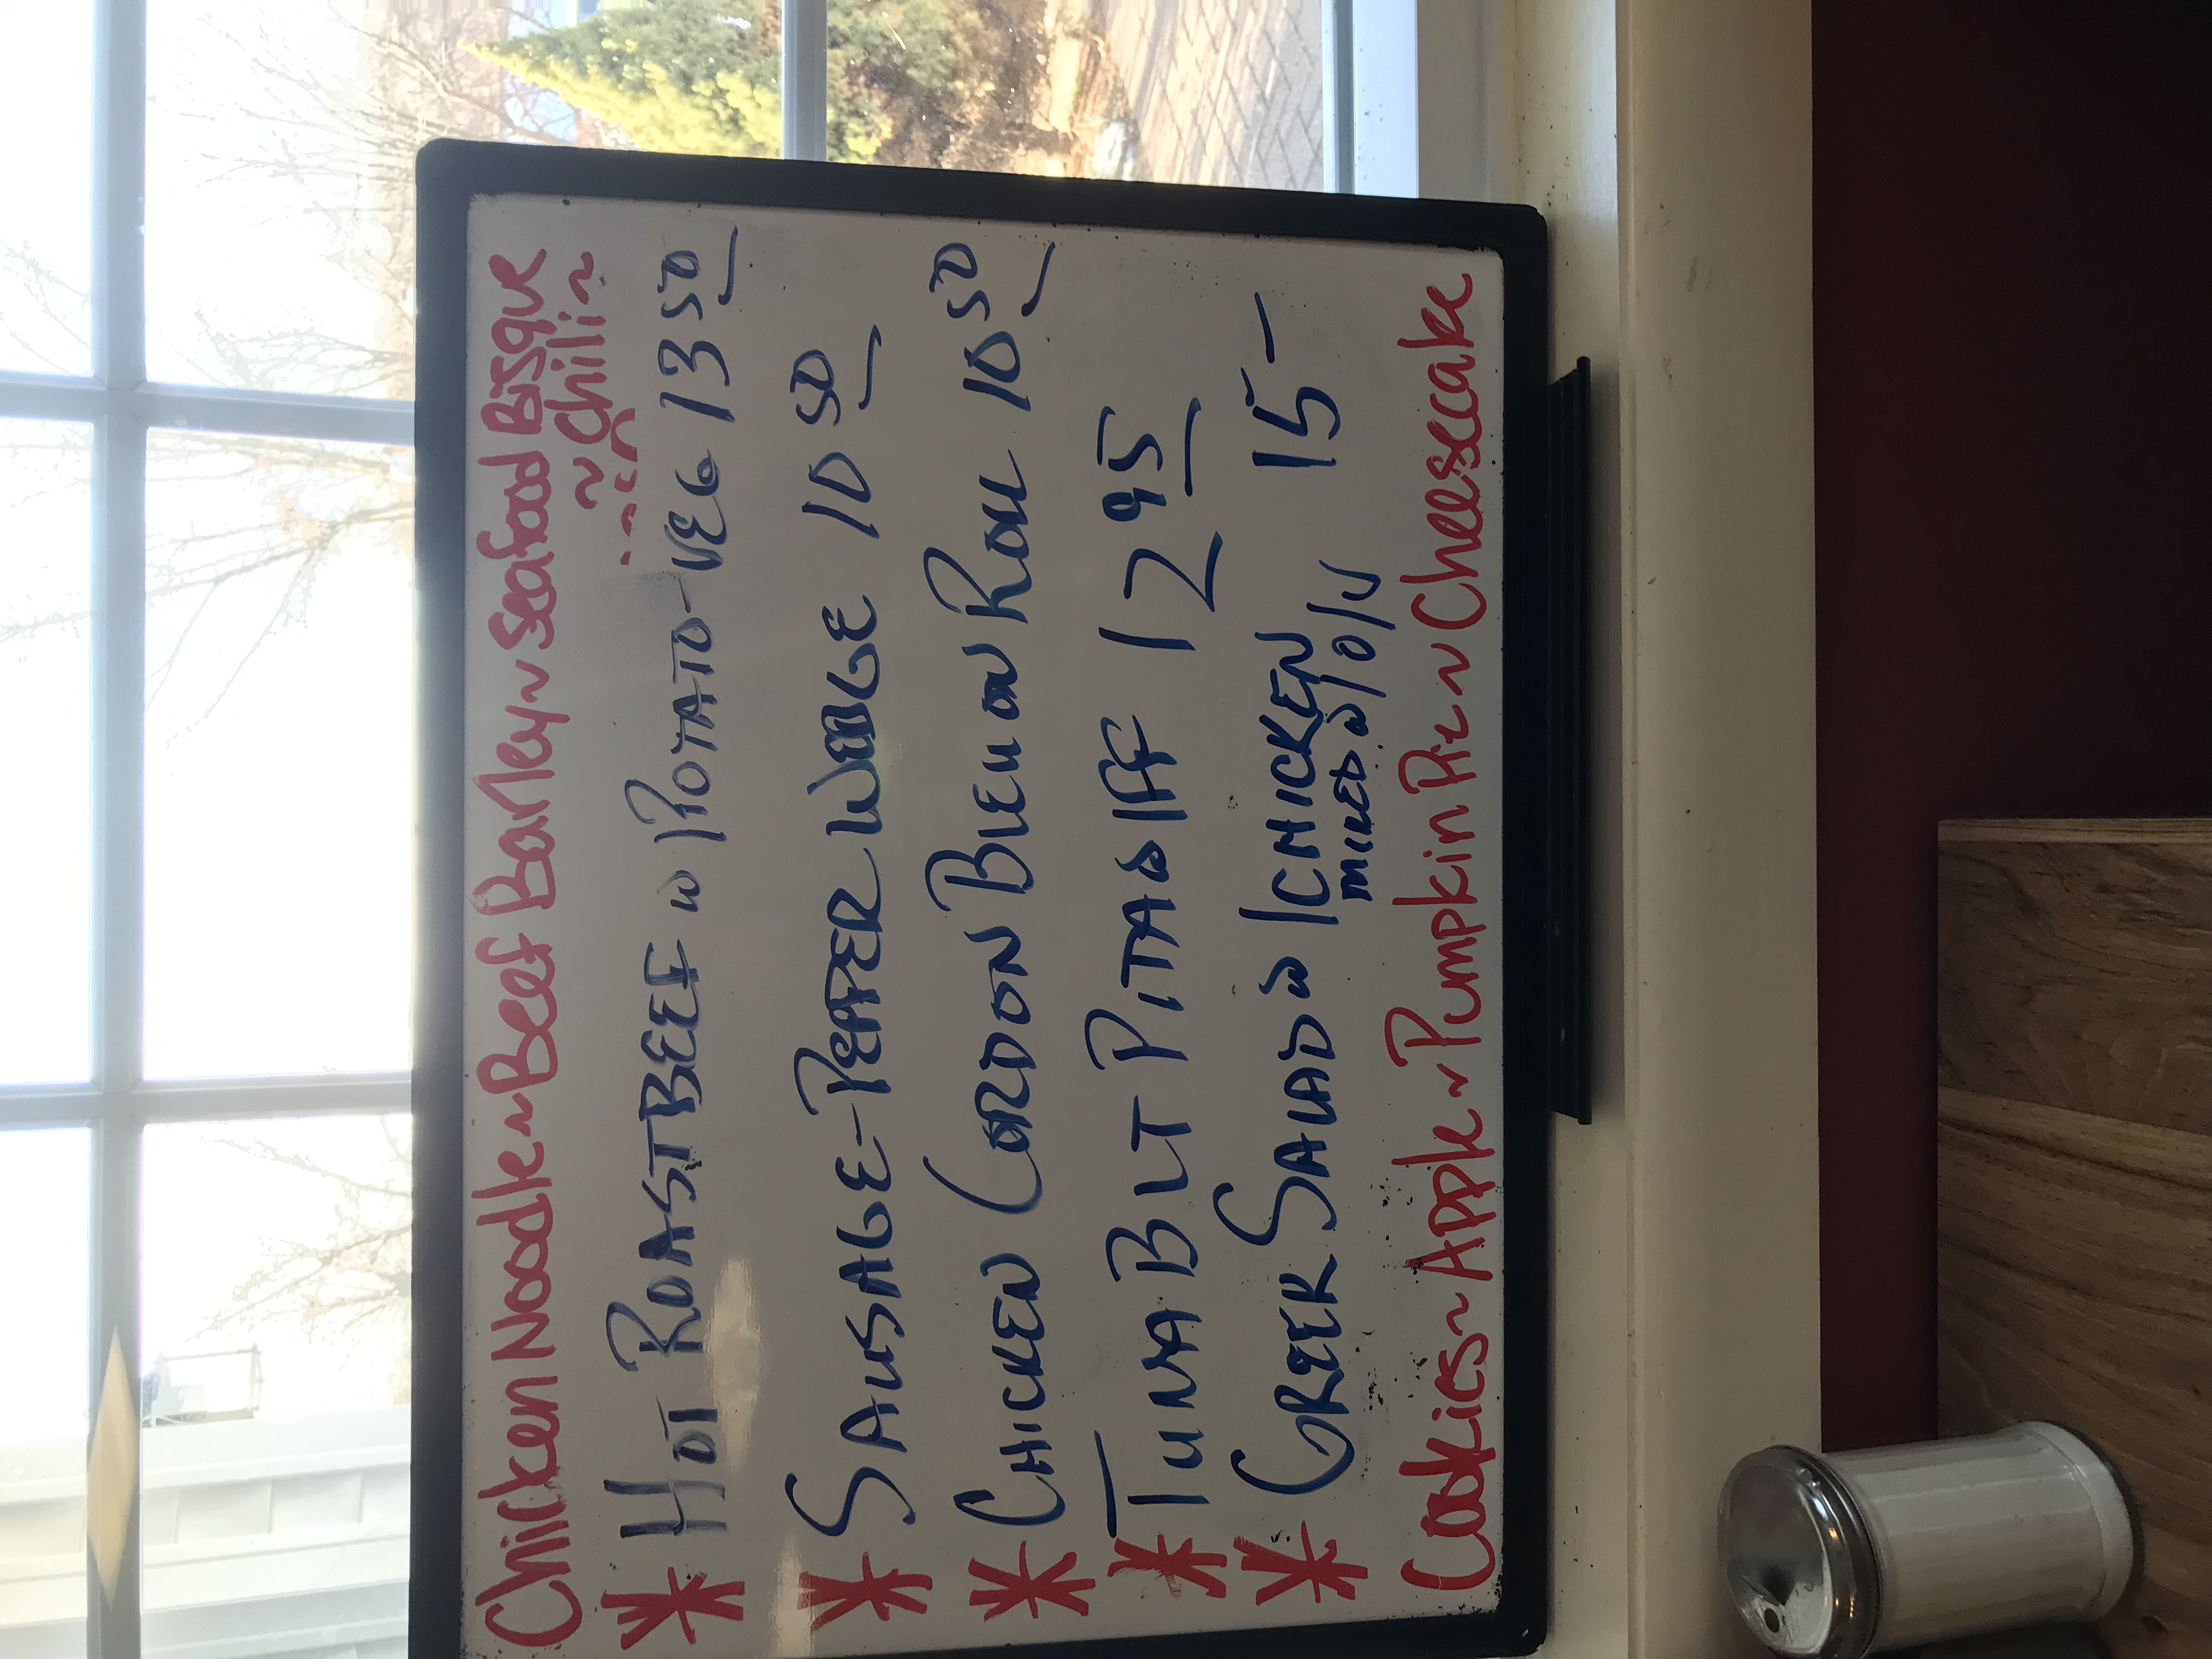 Chicken Noodle ~ Beef Barley ~ Seafood Bisque
~ Chili ~
* HOT ROASTBEEF W/ POTATO-VEG 13 50
* SAUSAGE-PEPPER WEDGE 10 50
* CHICKEN CORDON BLEU ON ROLL 10 50
* TUNA BLT PITA S/FF 12 95
* GREEK SALAD W/CHICKEN 15-
MIXED W/O/V
Cookies ~ Apple ~ Pumpkin Pie ~ Cheesecake